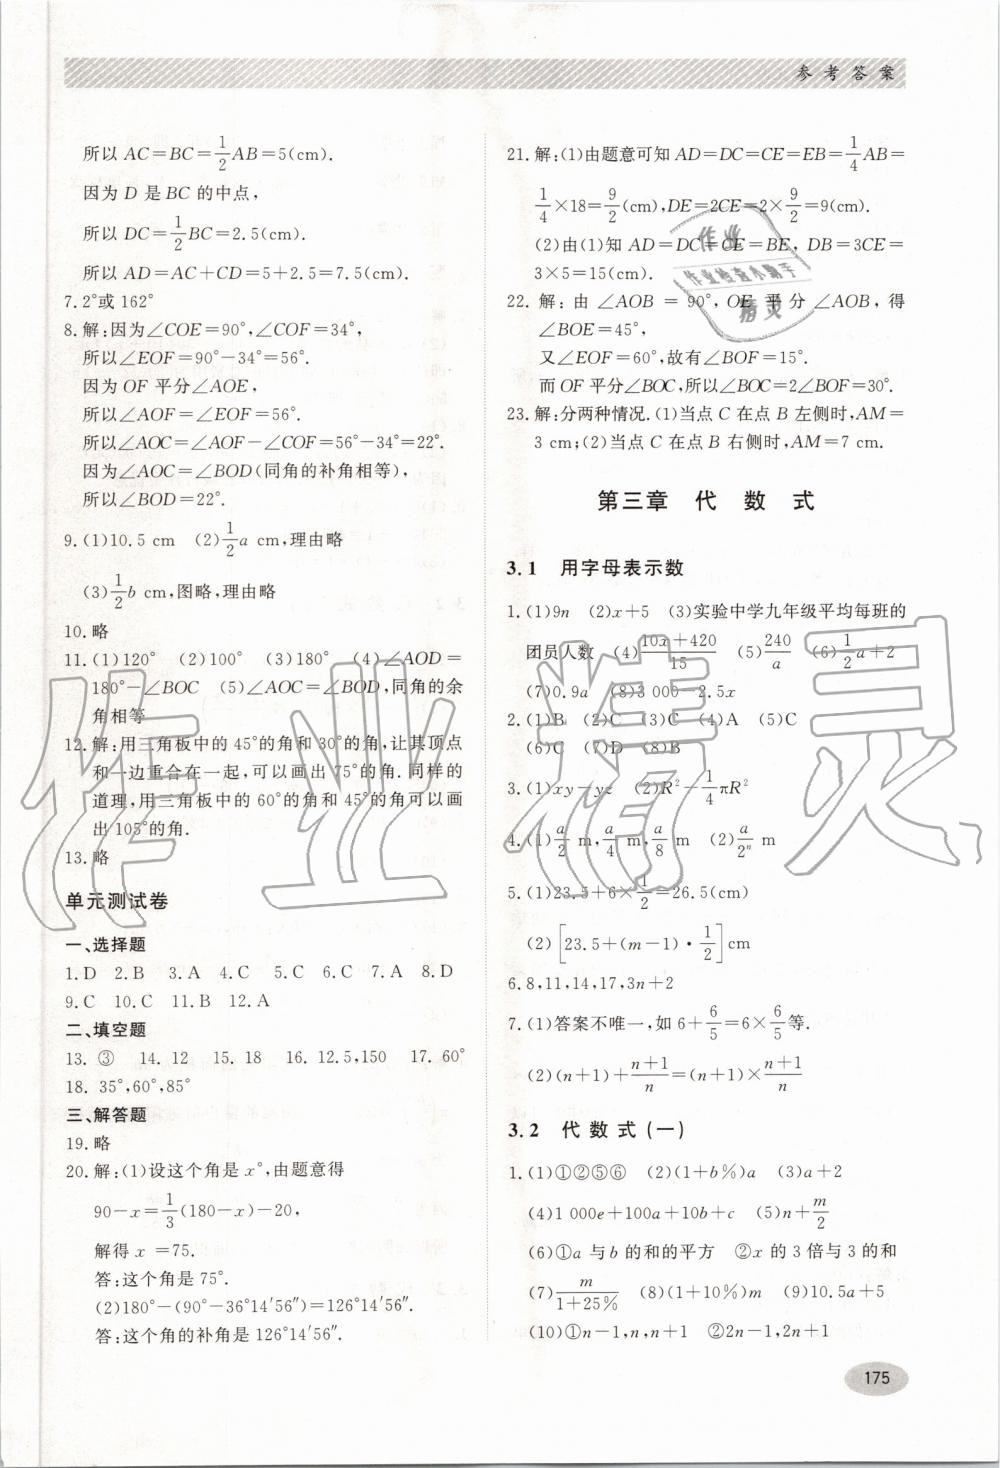 参考答案
所以 AC=BC=1/2AB=5(cm).
因为 D 是 BC 的中点,
所以 DC=1/2BC=2.5(cm).
所以 AD=AC+CD=5+2.5=7.5(cm).
7.2°或 162°
8.解:因为∠COE=90°,∠COF=34°,
所以∠EOF=90°-34°=56°.
因为 OF 平分∠AOE,
所以∠AOF=∠EOF=56°.
所以∠AOC=∠AOF-∠COF=56°-34°=22°.
因为∠AOC=∠BOD(同角的补角相等),
所以∠BOD=22°.
9.(1)10.5 cm (2)1/2a cm,理由略
(3)1/2b cm,图略,理由略
10.略
11.(1)120° (2)100° (3)180° (4)∠AOD=
180°-∠BOC (5)∠AOC=∠BOD,同角的余
角相等
12.解:用三角板中的 45°的角和 30°的角,让其顶点
和一边重合在一起,可以画出 75°的角.同样的
道理,用三角板中的 60°的角和 45°的角可以画
出 105°的角.
13.略
单元测试卷
一、选择题
1.D 2.B 3.A 4.C 5.C 6.C 7.A 8.D
9.C 10.C 11.B 12.A
二、填空题
13. ③ 14. 12 15. 18 16. 12.5,150 17. 60°
18. 35°,60°,85°
三、解答题
19.略
20.解:(1)设这个角是 x°,由题意得
90-x=1/3(180-x)-20,
解得 x =75.
答:这个角是 75°.
(2)180°-(90°-36°14′56″)=126°14′56″.
答:这个角的补角是 126°14′56″.
21.解:(1)由题意可知 AD=DC=CE=EB=1/4AB=
1/4×18=9/2(cm),DE=2CE=2×9/2=9(cm).
(2)由(1)知 AD=DC=CE=BE, DB=3CE=
3×5=15(cm).
22.解: 由 ∠AOB = 90°, OE 平 分 ∠AOB, 得
∠BOE=45°,
又∠EOF=60°,故有∠BOF=15°.
而 OF 平分∠BOC,所以∠BOC=2∠BOF=30°.
23.解:分两种情况.(1)当点 C 在点 B 左侧时,AM=
3 cm;(2)当点 C 在点 B 右侧时,AM=7 cm.
第三章 代 数 式
3.1 用字母表示数
1.(1)9n (2)x+5 (3)实验中学九年级平均每班的
团员人数 (4)(10x+420)/15 (5)240/a (6)1/2a+2
(7)0.9a (8)3 000-2.5x
2.(1)B (2)C (3)C (4)A (5)C
(6)C (7)D (8)B
3.(1)xy-yz (2)R²-1/4πR²
4.(1)a/2 m,a/4 m,a/8 m (2)a/2ⁿ m
5.(1)23.5+6×1/2=26.5(cm)
(2)[23.5+(m-1)·1/2]cm
6.8,11,14,17,3n+2
7.(1)答案不唯一,如 6+6/5=6×6/5等.
(2)(n+1)+(n+1)/n=(n+1)×(n+1)/n
3.2 代数式(一)
1.(1)①②⑤⑥ (2)(1+b%)a (3)a+2
(4)1 000e+100a+10b+c (5)n+m/2
(6)①a 与 b 的和的平方 ②x 的 3 倍与 3 的和
(7)m/(1+25%) (8)(1+10%)m (9)10.5a+5
(10)①n-1,n,n+1 ②2n-1,2n+1
175
作业
作业检查小助手
精灵
作业精灵